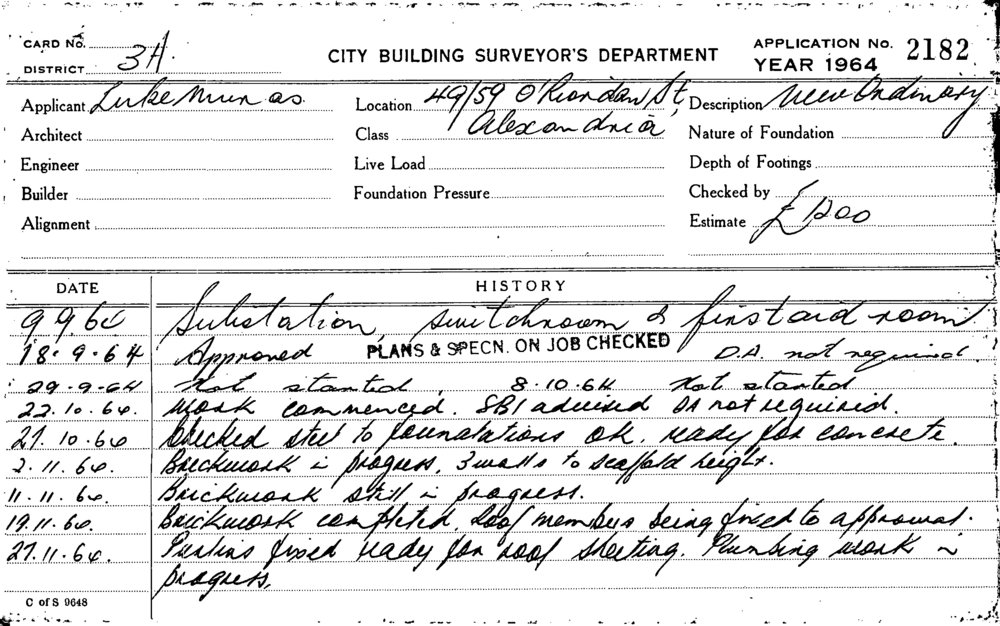 CARD No.
DISTRICT 3H
CITY BUILDING SURVEYOR'S DEPARTMENT
APPLICATION No. 2182
YEAR 1964
Applicant Luke
Location 49/59 O'Riordan St,
Alexandria
Description New Ordinary
Architect
Class
Nature of Foundation
Engineer
Live Load
Depth of Footings
Builder
Foundation Pressure
Checked by
Alignment
Estimate £1200
DATE
HISTORY
9 9 64 Substation, switchroom & first aid room.
18.9.64 Approved PLANS & SPECN. ON JOB CHECKED D.A. not required.
29.9.64 Not started, 8.10.64 Not started
22.10.64. Work commenced. SBI advised DA not required.
27.10.64 Checked steel to foundations OK. ready for concrete.
2.11.64. Brickwork in progress, 3 walls to scaffold height.
11.11.64. Brickwork still in progress.
19.11.64. Brickwork completed, Roof members being fixed to approval.
27.11.64. Purlins fixed ready for roof sheeting. Plumbing work in
progress.
C of S 9648